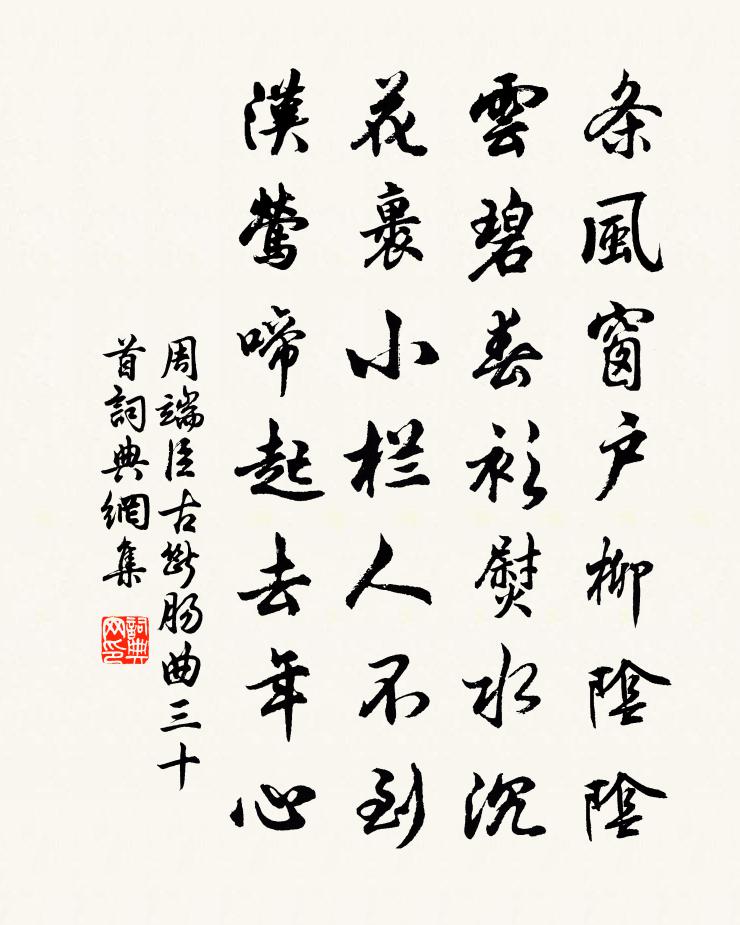 条風窗户柳陰陰
雲碧春衫熨水沉
花裏小栏人不到
漢鶯啼起去年心
周端臣古斷肠曲三十
首詞典網集
詞典网印